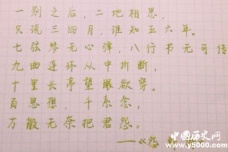 一别之后，二地相思，
只说三四月，谁知五六年。
七弦琴无心弹，八行书无可传
九曲连环从中折断，
十里长亭望眼欲穿。
百思想，千系念，
万般无奈把君怨。
中国历史网
www.y5000.com